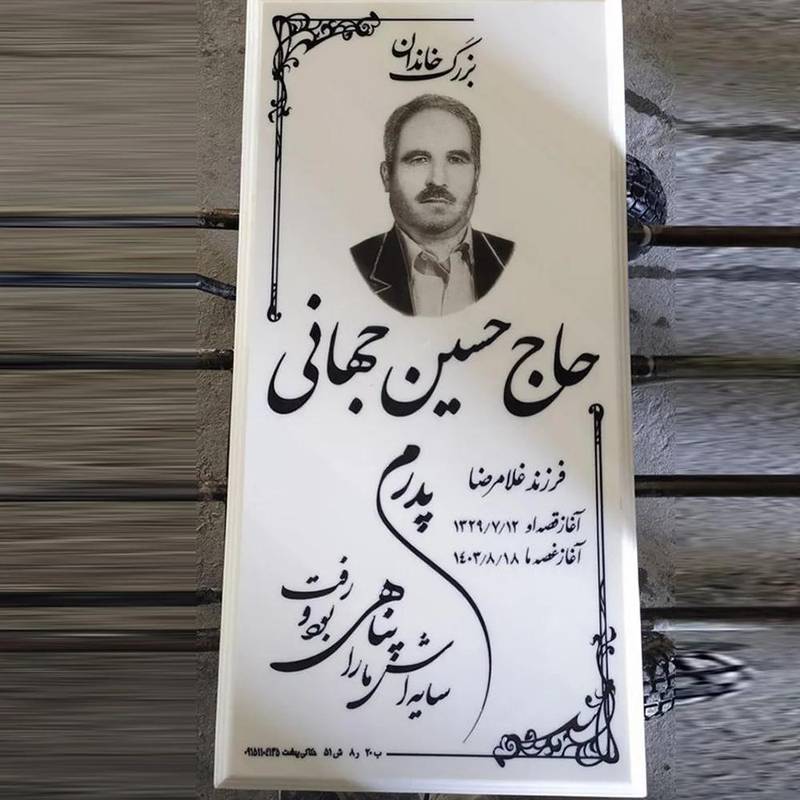 بزرگ خاندان
حاج حسین جهانی
فرزند غلامرضا
آغاز قصه او ۱۳۲۹/۷/۱۲
آغاز غصه ما ۱۴۰۳/۸/۱۸
پدرم
سایه اش ما را پناهی بود و رفت
ب ۲۰ ر ۸ ش ۵۱